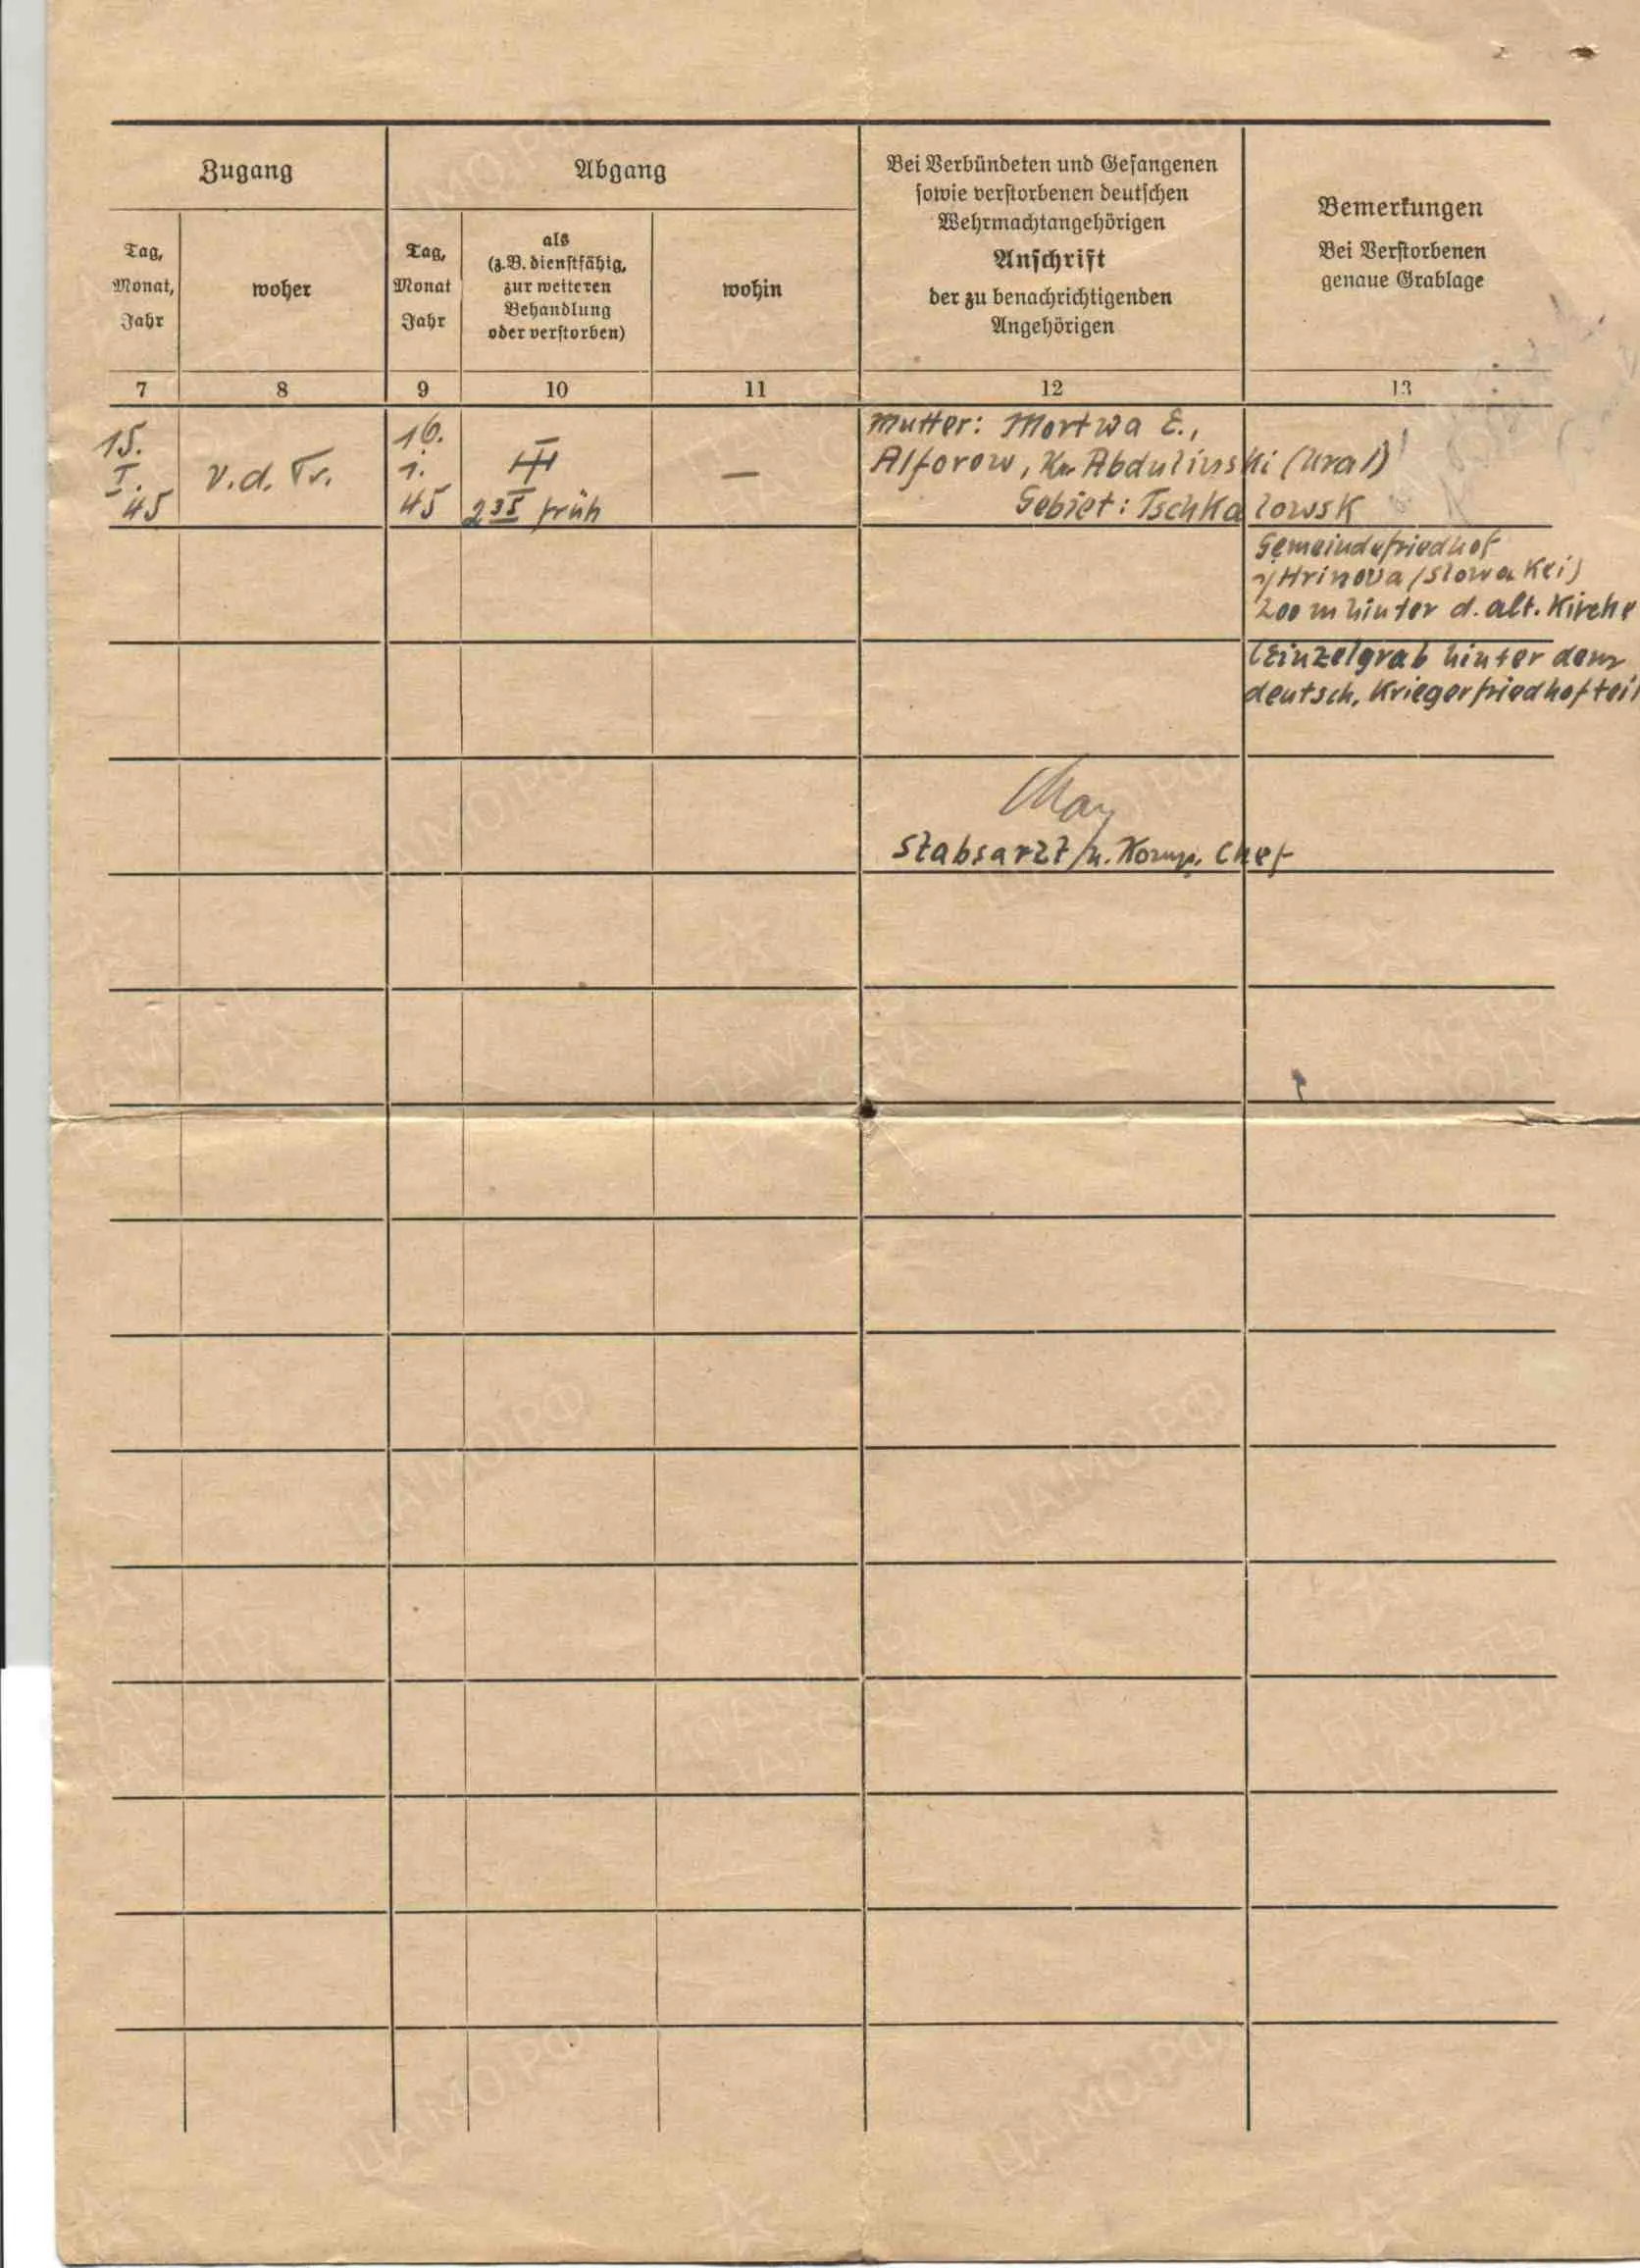 Zugang
Abgang
Bei Verbündeten und Gefangenen
sowie verstorbenen deutschen
Wehrmachtangehörigen
Anschrift
der zu benachrichtigenden
Angehörigen
Bemerkungen
Bei Verstorbenen
genaue Grablage
Tag,
Monat,
Jahr
woher
Tag,
Monat
Jahr
als
(z.B. dienstfähig,
zur weiteren
Behandlung
oder verstorben)
wohin
7 8 9 10 11 12 13
15.
I.
45
v.d. Tr.
16.
1.
45
früh
—
Mutter: Mortwa E.,
Alforow, Abdulinski (Ural)
Gebiet: Tschkalowsk
Gemeindefriedhof
Hrinova (Slowakei)
200 m hinter d. alt. Kirche
(Einzelgrab hinter dem
deutsch. Kriegerfriedhofteil
May
Stabsarzt u. Komp. Chef
ЦАМО.РФ
ПАМЯТЬ
НАРОДА